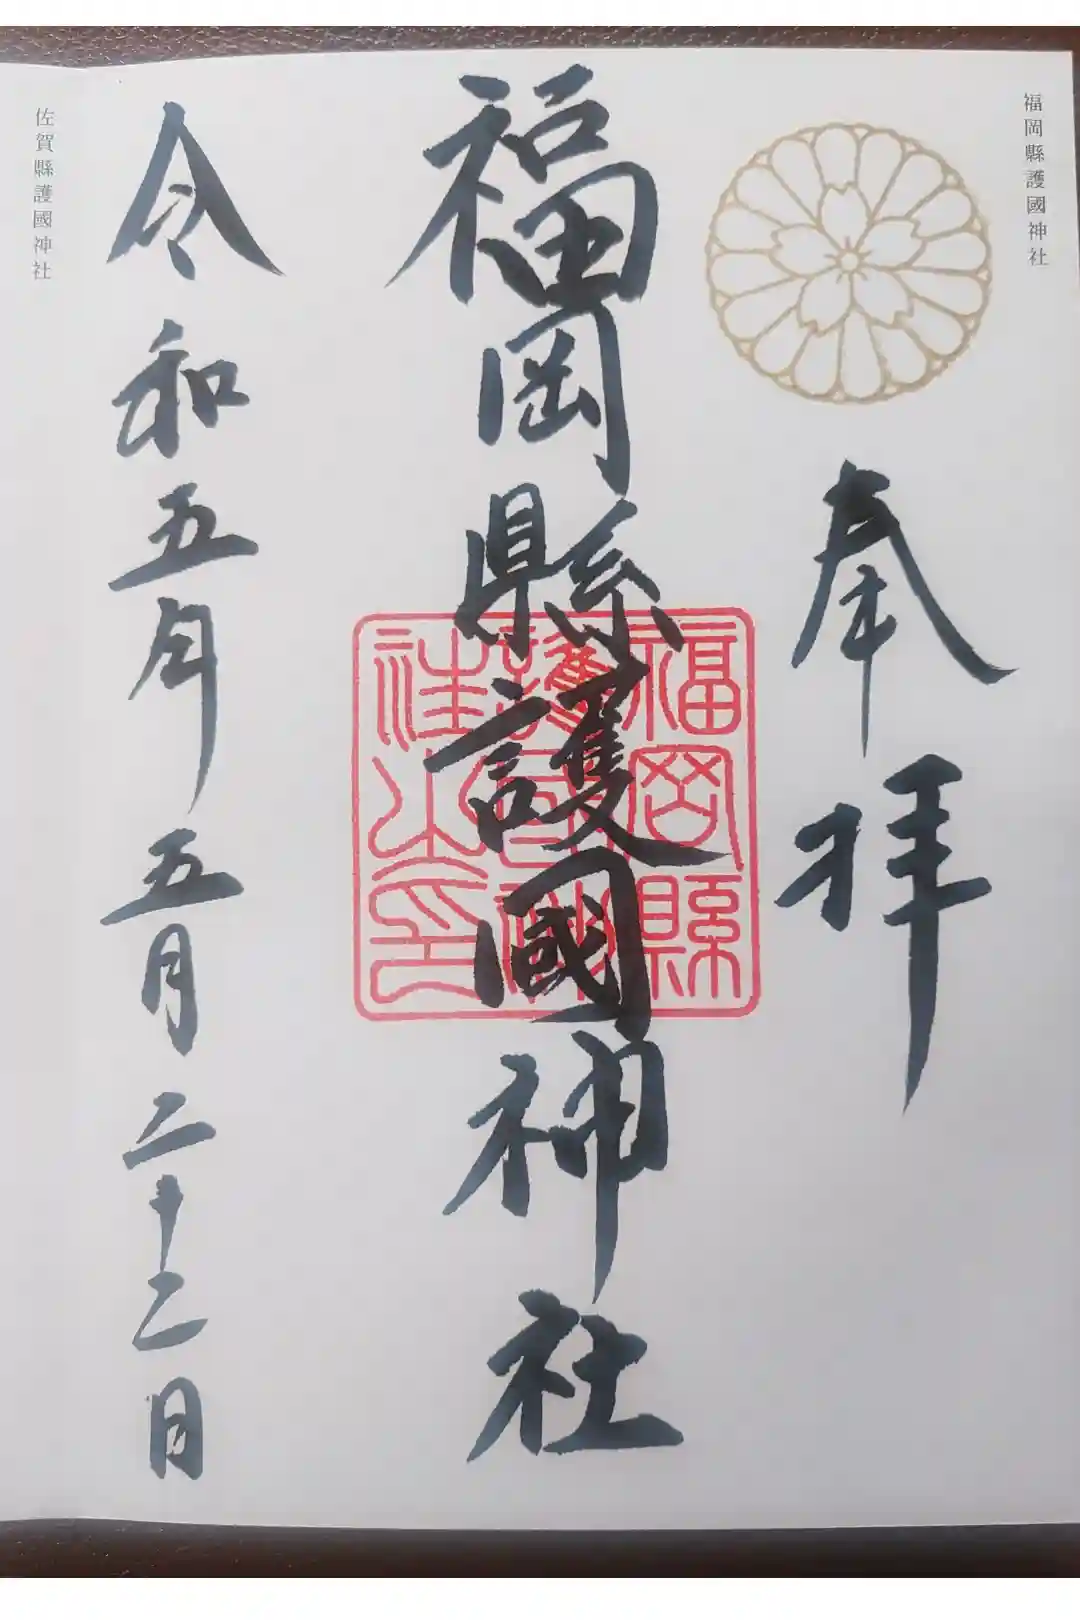 福岡縣護國神社
奉拝
福岡縣護國神社
福岡縣護國神社之印
令和五年五月二十二日
佐賀縣護國神社